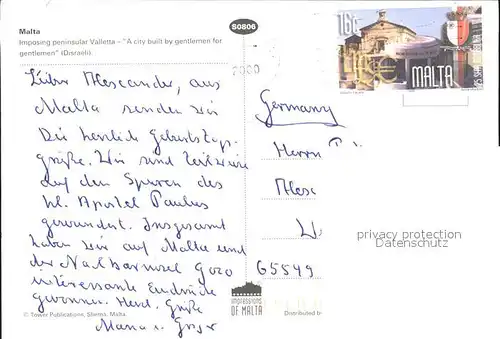 Malta
Imposing peninsular Valletta – "A city built by gentlemen for
gentlemen" (Disraeli).
S0806
16c
MALTA
2000
Lieber Alexander, aus
Malta senden wir
Dir herzlich Geburtstags-
grüße. Wir sind zeitweise
auf den Spuren des
hl. Apostel Paulus
gewandert. Insgesamt
haben wir auf Malta und
der Nachbarinsel Gozo
interessante Eindrücke
gewonnen. Herzl. Grüße
Maria u.
Germany
Herrn
65549
privacy protection
Datenschutz
© Tower Publications, Sliema, Malta.
impressions
OF MALTA
Distributed b